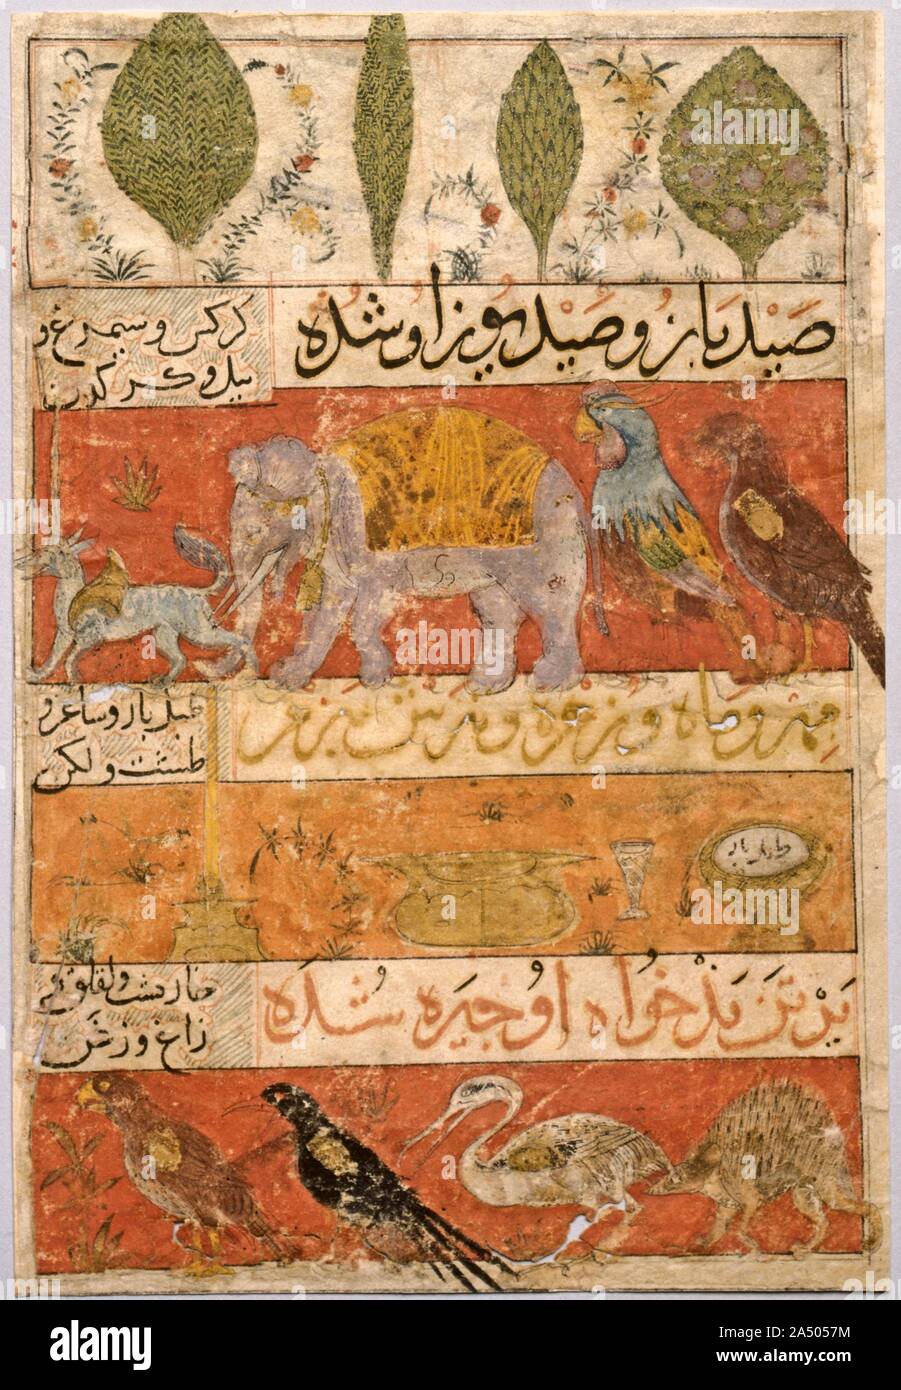 صید باز و صید یوز او شده
کرکس و سیمرغ و
پیل و کرکدن
مهر و ماه و زهره و
طبل باز و ساغر و
طشت و لکن
طبل باز
بر تن بدخواه او چیره شده
خارپشت و لقلق و
زاغ و زغن
alamy
Image ID: 2A5057M
www.alamy.com